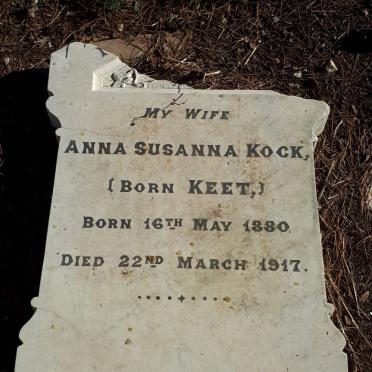 MY WIFE
ANNA SUSANNA KOCK,
(BORN KEET,)
BORN 16TH MAY 1880,
DIED 22ND MARCH 1917.